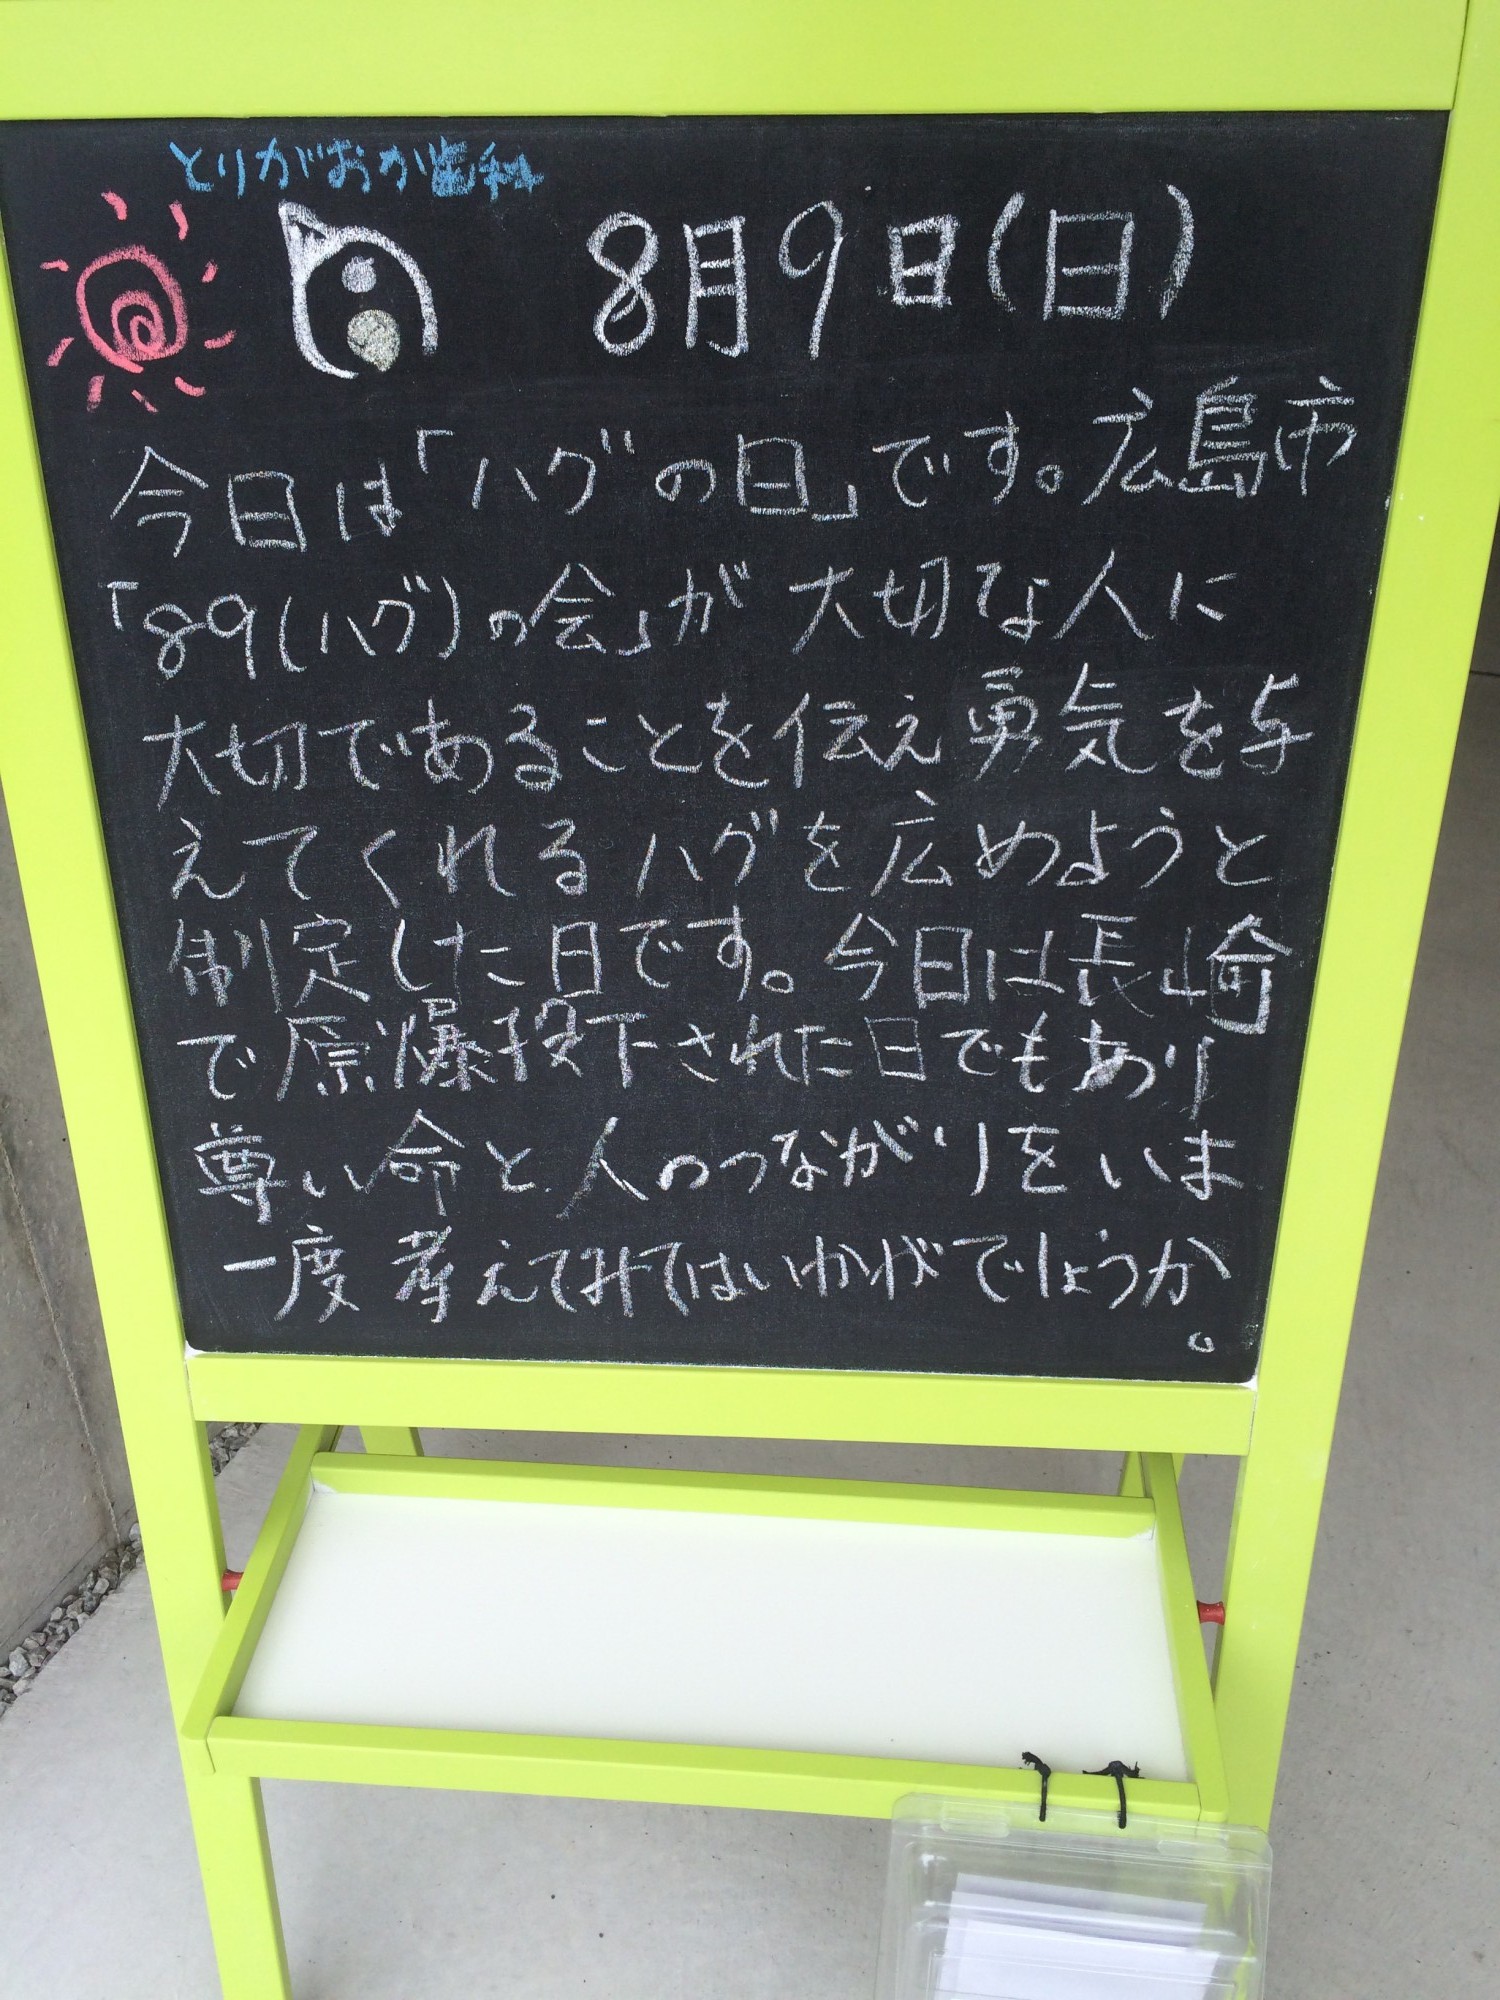 とりがおか歯科
8月9日(日)
今日は「ハグの日」です。広島市
「89(ハグ)の会」が大切な人に
大切であることを伝え勇気を与
えてくれるハグを広めようと
制定した日です。今日は長崎
で原爆投下された日でもあり
尊い命と人のつながりをいま
一度考えてみてはいかがでしょうか
。